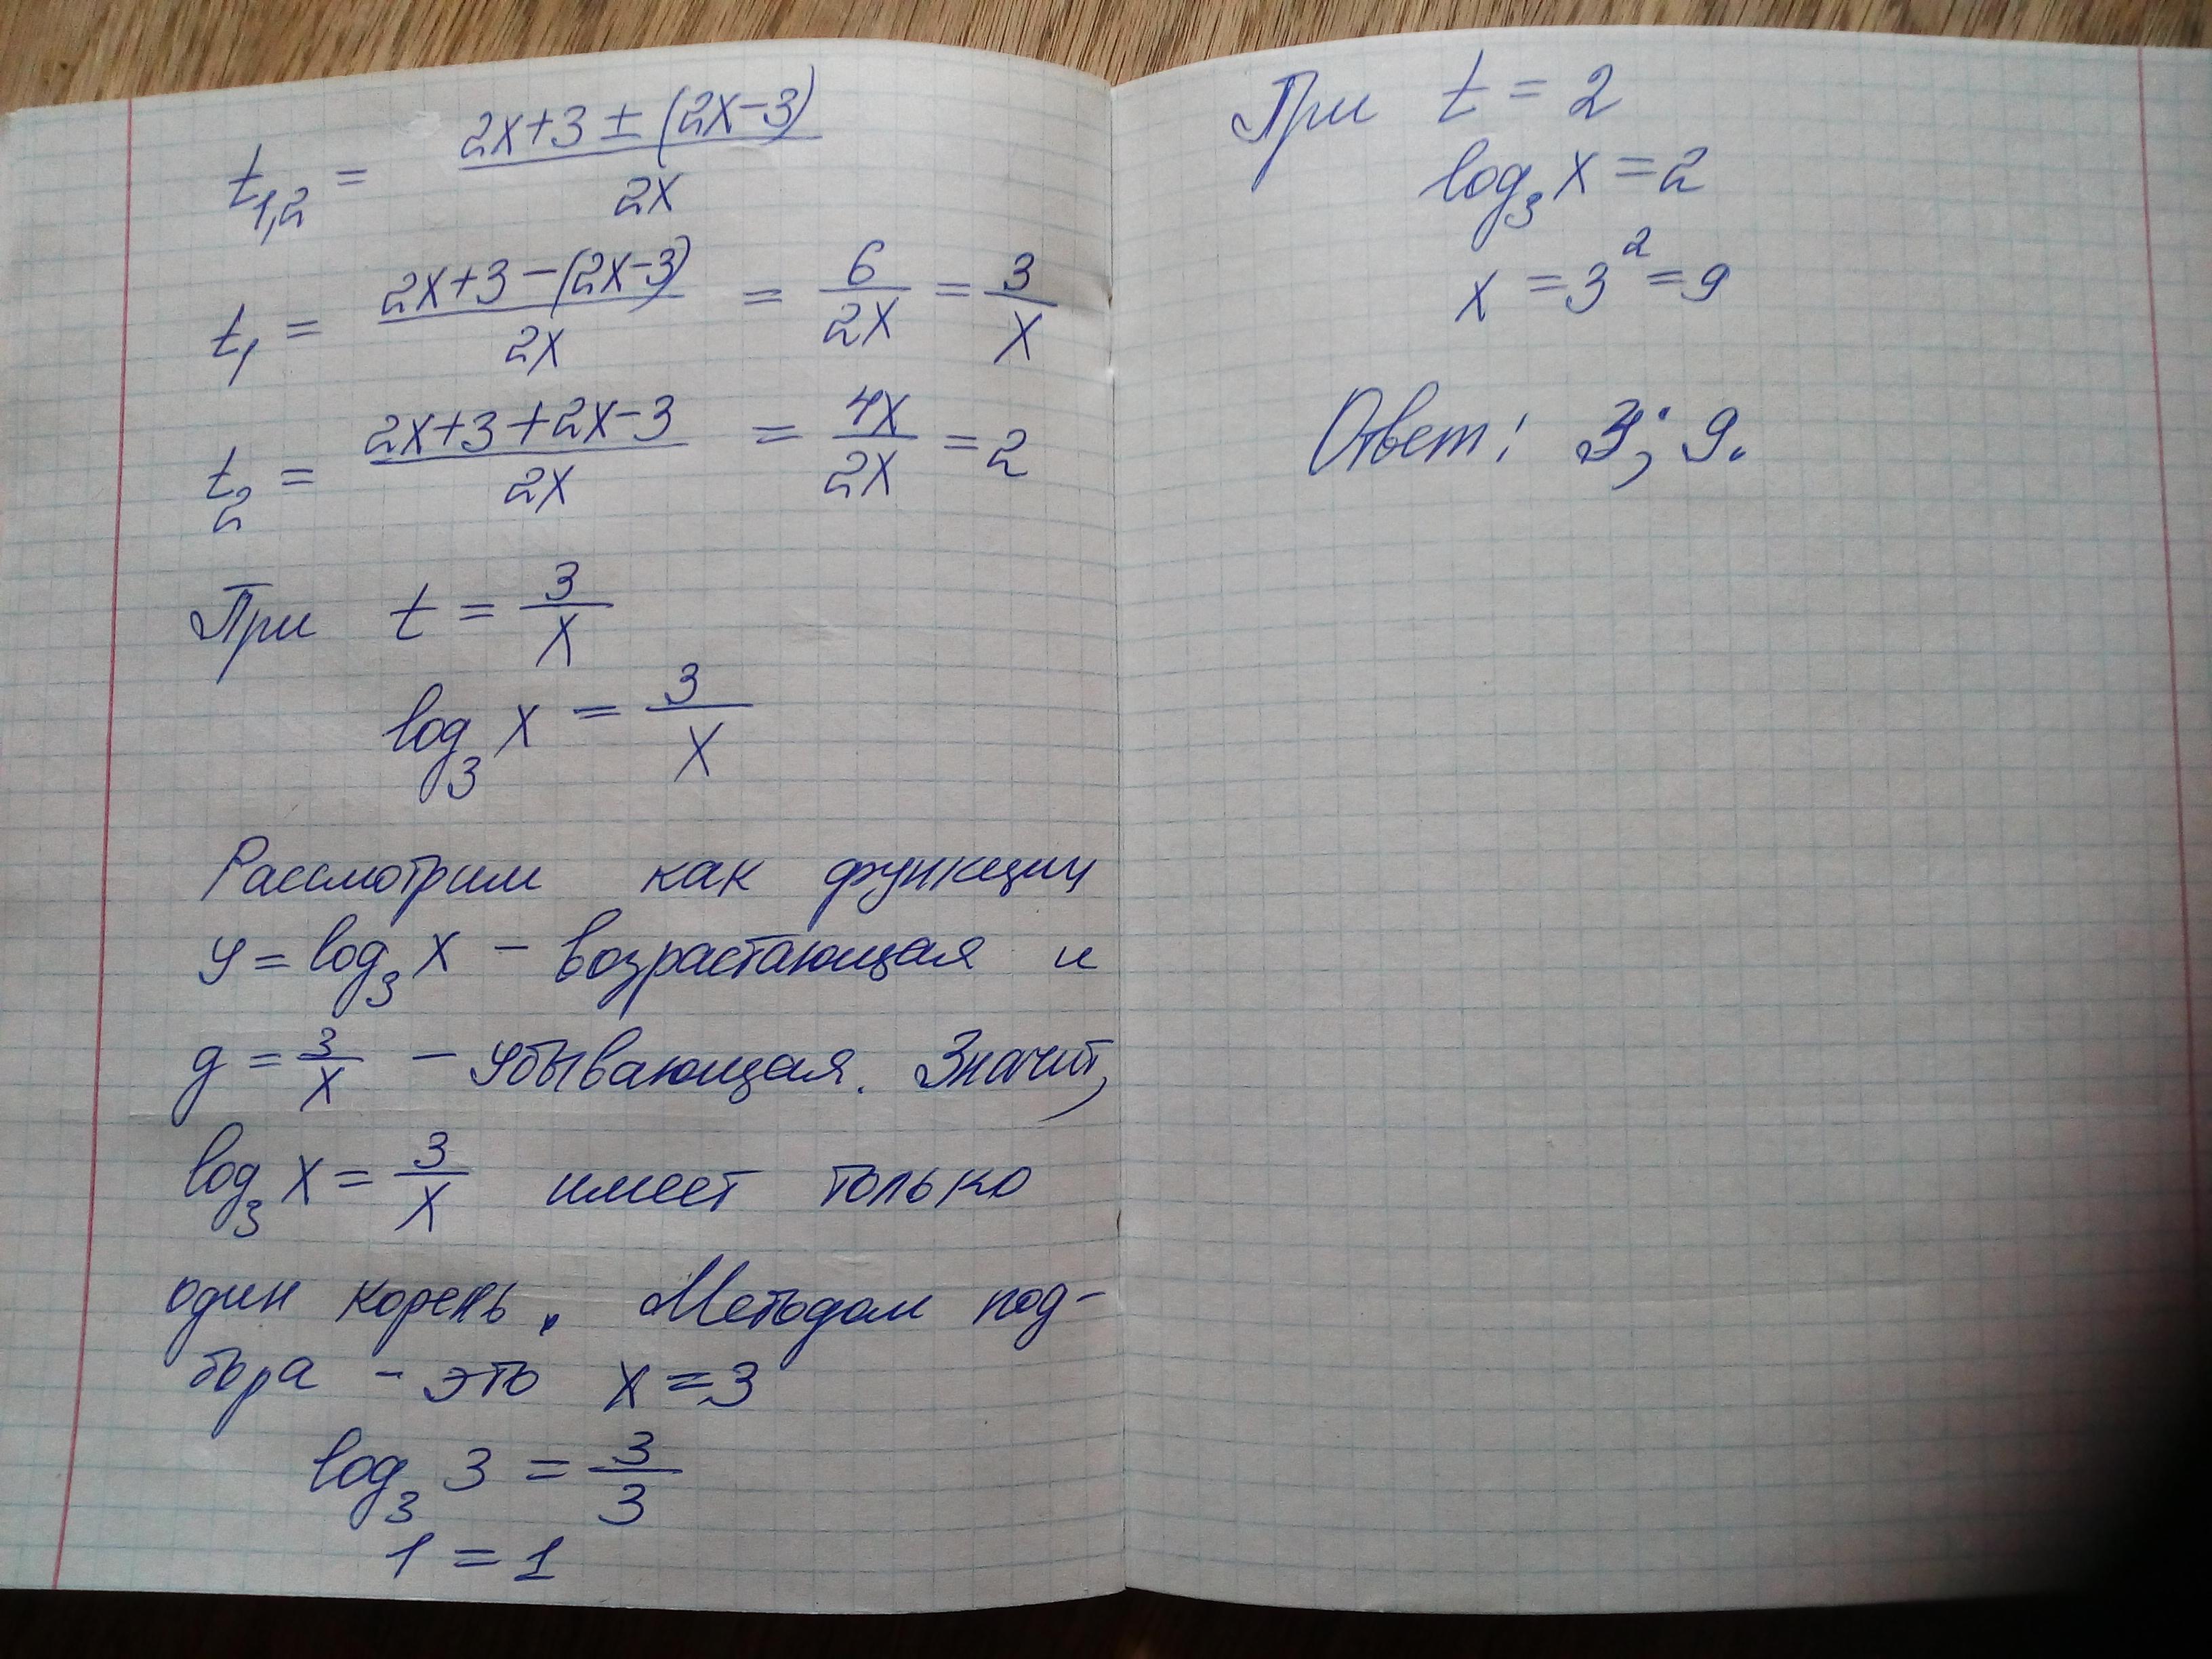 t₁,₂ = (2x+3 ± (2x−3)) / 2x
t₁ = (2x+3−(2x−3)) / 2x = 6/2x = 3/x
t₂ = (2x+3+2x−3) / 2x = 4x/2x = 2
При t = 3/x
log₃ x = 3/x
Рассмотрим как функции
y = log₃ x – возрастающая и
g = 3/x – убывающая. Значит,
log₃ x = 3/x имеет только
один корень. Методом под-
бора – это x = 3
log₃ 3 = 3/3
1 = 1
При t = 2
log₃ x = 2
x = 3² = 9
Ответ: 3; 9.